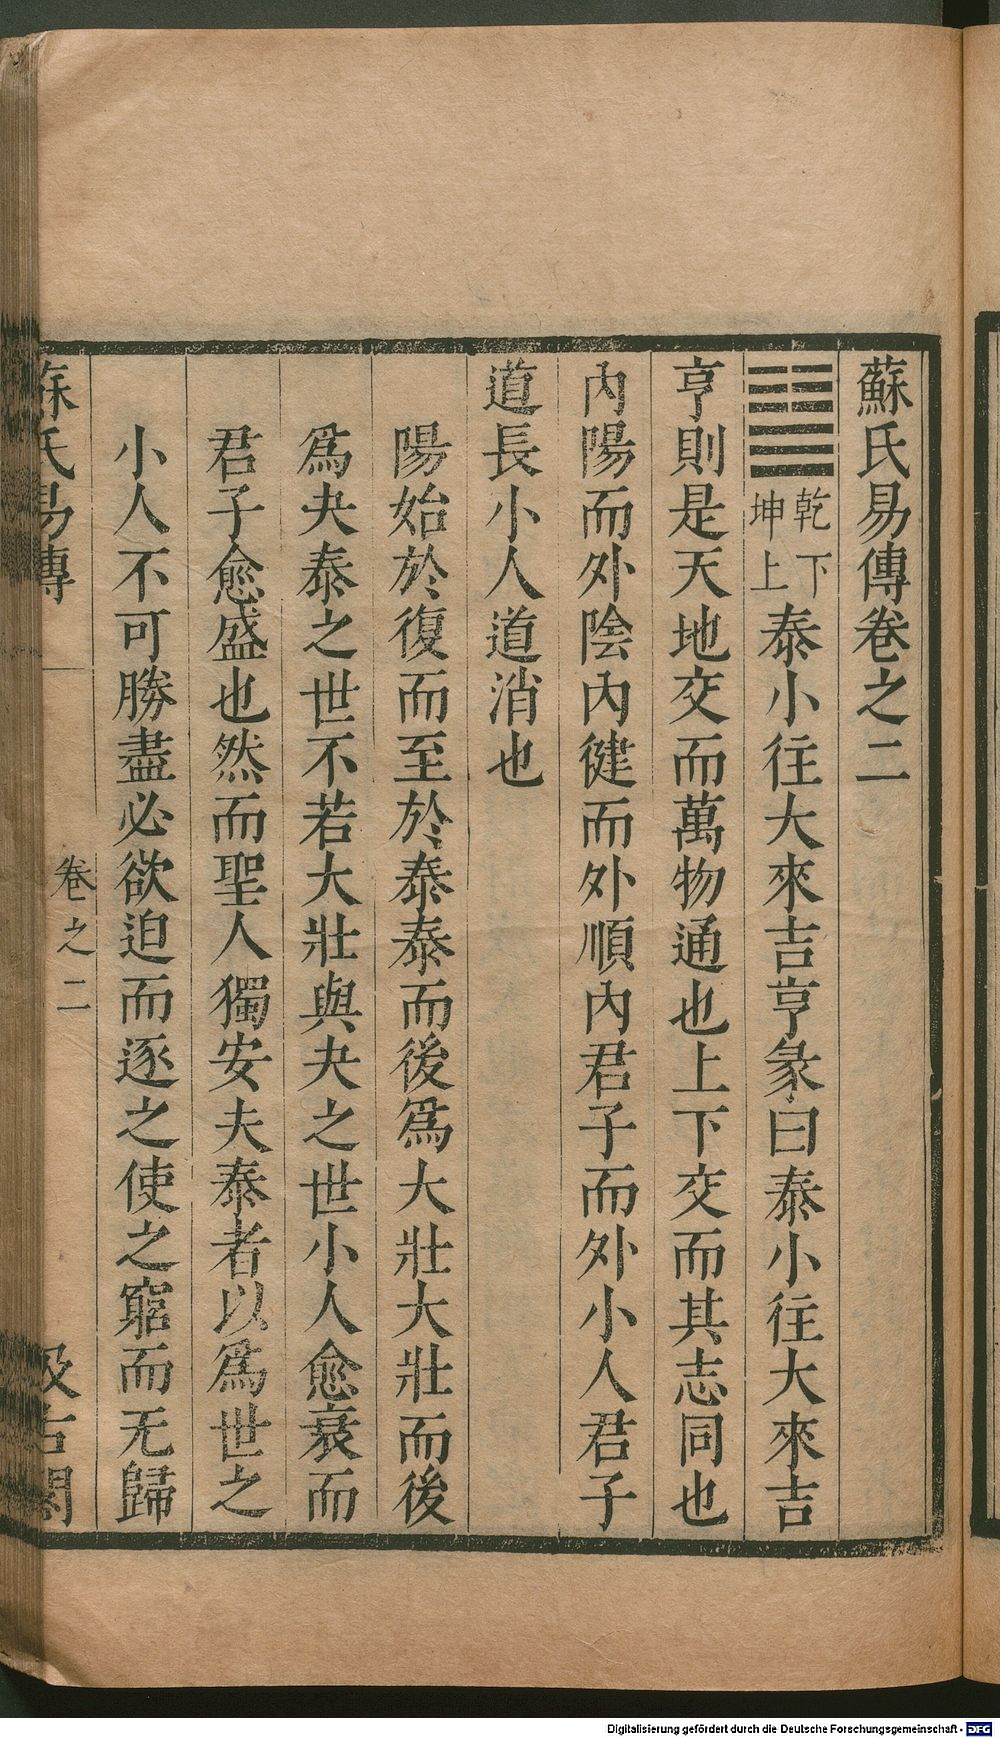 蘇氏易傳卷之二
䷊乾下坤上泰小往大來吉亨彖曰泰小往大來吉
亨則是天地交而萬物通也上下交而其志同也
內陽而外陰內健而外順內君子而外小人君子
道長小人道消也
陽始於復而至於泰泰而後爲大壯大壯而後
爲夬泰之世不若大壯與夬之世小人愈衰而
君子愈盛也然而聖人獨安夫泰者以爲世之
小人不可勝盡必欲迫而逐之使之窮而无歸
蘇氏易傳 卷之二 一 汲古閣
Digitalisierung gefördert durch die Deutsche Forschungsgemeinschaft - DFG